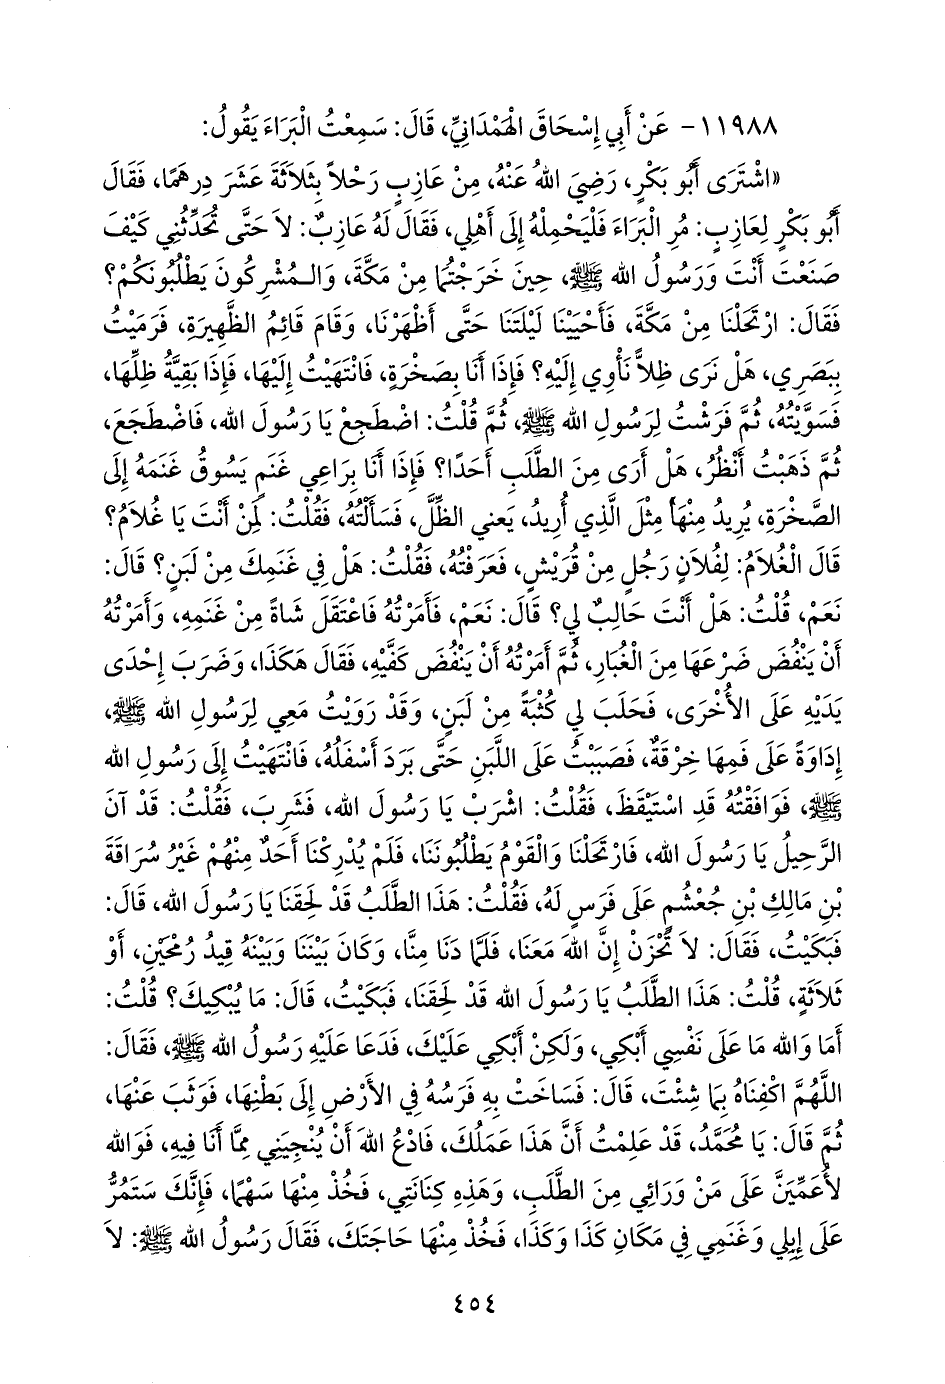 ١١٩٨٨- عَنْ أَبِي إِسْحَاقَ الْهَمْدَانِيِّ، قَالَ: سَمِعْتُ الْبَرَاءَ يَقُولُ:
«اشْتَرَى أَبُو بَكْرٍ، رَضِيَ اللهُ عَنْهُ، مِنْ عَازِبٍ رَحْلاً بِثَلاَثَةَ عَشَرَ دِرْهَمًا، فَقَالَ
أَبُو بَكْرٍ لِعَازِبٍ: مُرِ الْبَرَاءَ فَلْيَحْمِلْهُ إِلَى أَهْلِي، فَقَالَ لَهُ عَازِبٌ: لاَ حَتَّى تُحَدِّثُنِي كَيْفَ
صَنَعْتَ أَنْتَ وَرَسُولُ الله ﷺ، حِينَ خَرَجْتُمَا مِنْ مَكَّةَ، وَالْـمُشْرِكُونَ يَطْلُبُونَكُمْ؟
فَقَالَ: ارْتَحَلْنَا مِنْ مَكَّةَ، فَأَحْيَيْنَا لَيْلَتَنَا حَتَّى أَظْهَرْنَا، وَقَامَ قَائِمُ الظَّهِيرَةِ، فَرَمَيْتُ
بِبَصَرِي، هَلْ نَرَى ظِلاًّ نَأْوِي إِلَيْهِ؟ فَإِذَا أَنَا بِصَخْرَةٍ، فَانْتَهَيْتُ إِلَيْهَا، فَإِذَا بَقِيَّةُ ظِلِّهَا،
فَسَوَّيْتُهُ، ثُمَّ فَرَشْتُ لِرَسُولِ الله ﷺ، ثُمَّ قُلْتُ: اضْطَجِعْ يَا رَسُولَ الله، فَاضْطَجَعَ،
ثُمَّ ذَهَبْتُ أَنْظُرُ، هَلْ أَرَى مِنَ الطَّلَبِ أَحَدًا؟ فَإِذَا أَنَا بِرَاعِي غَنَمٍ يَسُوقُ غَنَمَهُ إِلَى
الصَّخْرَةِ، يُرِيدُ مِنْهَا مِثْلَ الَّذِي أُرِيدُ، يَعنِي الظِّلَّ، فَسَأَلْتُهُ، فَقُلْتُ: لِمَنْ أَنْتَ يَا غُلاَمُ؟
قَالَ الْغُلاَمُ: لِفُلاَنٍ رَجُلٍ مِنْ قُرَيْشٍ، فَعَرَفْتُهُ، فَقُلْتُ: هَلْ فِي غَنَمِكَ مِنْ لَبَنٍ؟ قَالَ:
نَعَمْ، قُلْتُ: هَلْ أَنْتَ حَالِبٌ لِي؟ قَالَ: نَعَمْ، فَأَمَرْتُهُ فَاعْتَقَلَ شَاةً مِنْ غَنَمِهِ، وَأَمَرْتُهُ
أَنْ يَنْفُضَ ضَرْعَهَا مِنَ الْغُبَارِ، ثُمَّ أَمَرْتُهُ أَنْ يَنْفُضَ كَفَّيْهِ، فَقَالَ هَكَذَا، وَضَرَبَ إِحْدَى
يَدَيْهِ عَلَى الأُخْرَى، فَحَلَبَ لِي كُثْبَةً مِنْ لَبَنٍ، وَقَدْ رَوَيْتُ مَعِي لِرَسُولِ الله ﷺ،
إِدَاوَةً عَلَى فَمِهَا خِرْقَةٌ، فَصَبَبْتُ عَلَى اللَّبَنِ حَتَّى بَرَدَ أَسْفَلُهُ، فَانْتَهَيْتُ إِلَى رَسُولِ الله
ﷺ، فَوَافَقْتُهُ قَدِ اسْتَيْقَظَ، فَقُلْتُ: اشْرَبْ يَا رَسُولَ الله، فَشَرِبَ، فَقُلْتُ: قَدْ آنَ
الرَّحِيلُ يَا رَسُولَ الله، فَارْتَحَلْنَا وَالْقَوْمُ يَطْلُبُونَنَا، فَلَمْ يُدْرِكْنَا أَحَدٌ مِنْهُمْ غَيْرُ سُرَاقَةَ
بْنِ مَالِكِ بْنِ جُعْشُمٍ عَلَى فَرَسٍ لَهُ، فَقُلْتُ: هَذَا الطَّلَبُ قَدْ لَحِقَنَا يَا رَسُولَ الله، قَالَ:
فَبَكَيْتُ، فَقَالَ: لاَ تَحْزَنْ إِنَّ اللهَ مَعَنَا، فَلَمَّا دَنَا مِنَّا، وَكَانَ بَيْنَنَا وَبَيْنَهُ قِيدُ رُمْحَيْنِ، أَوْ
ثَلاَثَةٍ، قُلْتُ: هَذَا الطَّلَبُ يَا رَسُولَ الله قَدْ لَحِقَنَا، فَبَكَيْتُ، قَالَ: مَا يُبْكِيكَ؟ قُلْتُ:
أَمَا وَالله مَا عَلَى نَفْسِي أَبْكِي، وَلَكِنْ أَبْكِي عَلَيْكَ، فَدَعَا عَلَيْهِ رَسُولُ الله ﷺ، فَقَالَ:
اللَّهُمَّ اكْفِنَاهُ بِمَا شِئْتَ، قَالَ: فَسَاخَتْ بِهِ فَرَسُهُ فِي الأَرْضِ إِلَى بَطْنِهَا، فَوَثَبَ عَنْهَا،
ثُمَّ قَالَ: يَا مُحَمَّدُ، قَدْ عَلِمْتُ أَنَّ هَذَا عَمَلُكَ، فَادْعُ اللهَ أَنْ يُنْجِيَنِي مِمَّا أَنَا فِيهِ، فَوَالله
لأُعَمِّيَنَّ عَلَى مَنْ وَرَائِي مِنَ الطَّلَبِ، وَهَذِهِ كِنَانَتِي، فَخُذْ مِنْهَا سَهْمًا، فَإِنَّكَ سَتَمُرُّ
عَلَى إِبِلِي وَغَنَمِي فِي مَكَانِ كَذَا وَكَذَا، فَخُذْ مِنْهَا حَاجَتَكَ، فَقَالَ رَسُولُ الله ﷺ: لاَ
٤٥٤